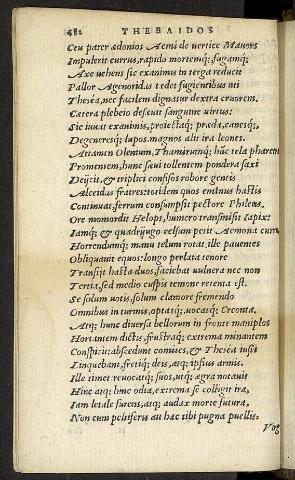 THEBAIDOS
Ceu pater ædonios Aemi de uertice Mauors
Impulerit currus, rapido mortemq;, fugamq;
Axe uehens sic exanimis in terga reducit
Pallor Agenoridas tædet fugientibus uti
Thesea, nec facilem dignatur dextra cruorem.
Cætera plebeio desæuit sanguine uirtus:
Sic iuuat exanimis, proiectaq; præda, canesq;,
Degeneresq; lupos, magnos alit ira leones.
Attamen Olenium, Thamirumq; húc tela pharetræ
Promentem, hunc sæui tollentem pondera saxi
Deijcit, & triplici confisos robore gentis
Alcetidas fratres: totidem quos eminus hastis
Continuat, ferrum consumpsit pectore Phileus,
Ore momordit Helops, humero transmisit Iapix:
Iamq; & quadrijugo celsum petit Aemona curru
Horrendumq; manu telum rotat, ille pauentes
Obliquauit equos: longo perlata tenore
Transijt hasta duos, faciebat uulnera nec non
Tertia, sed medio cuspis temone retenta est.
Se solum uotis, solum clamore fremendo
Omnibus in turmis, optatq; uocatq; Creonta,
Atq; hunc diuersa bellorum in fronte maniplos
Hortantem dictis, frustraq; extrema minantem
Conspicit: abscedunt comites, & Thesea iussi
Linquebant, fretiq; deis, atq; ipsius armis.
Ille tenet reuocatq; suos, utq; æqra notauit
Hinc atq; hinc odia, extrema sẽ colligit ira,
Iam letale furens, atq; audax morte futura,
Non cum peltiferis ait hæc tibi pugna puellis,
Virg